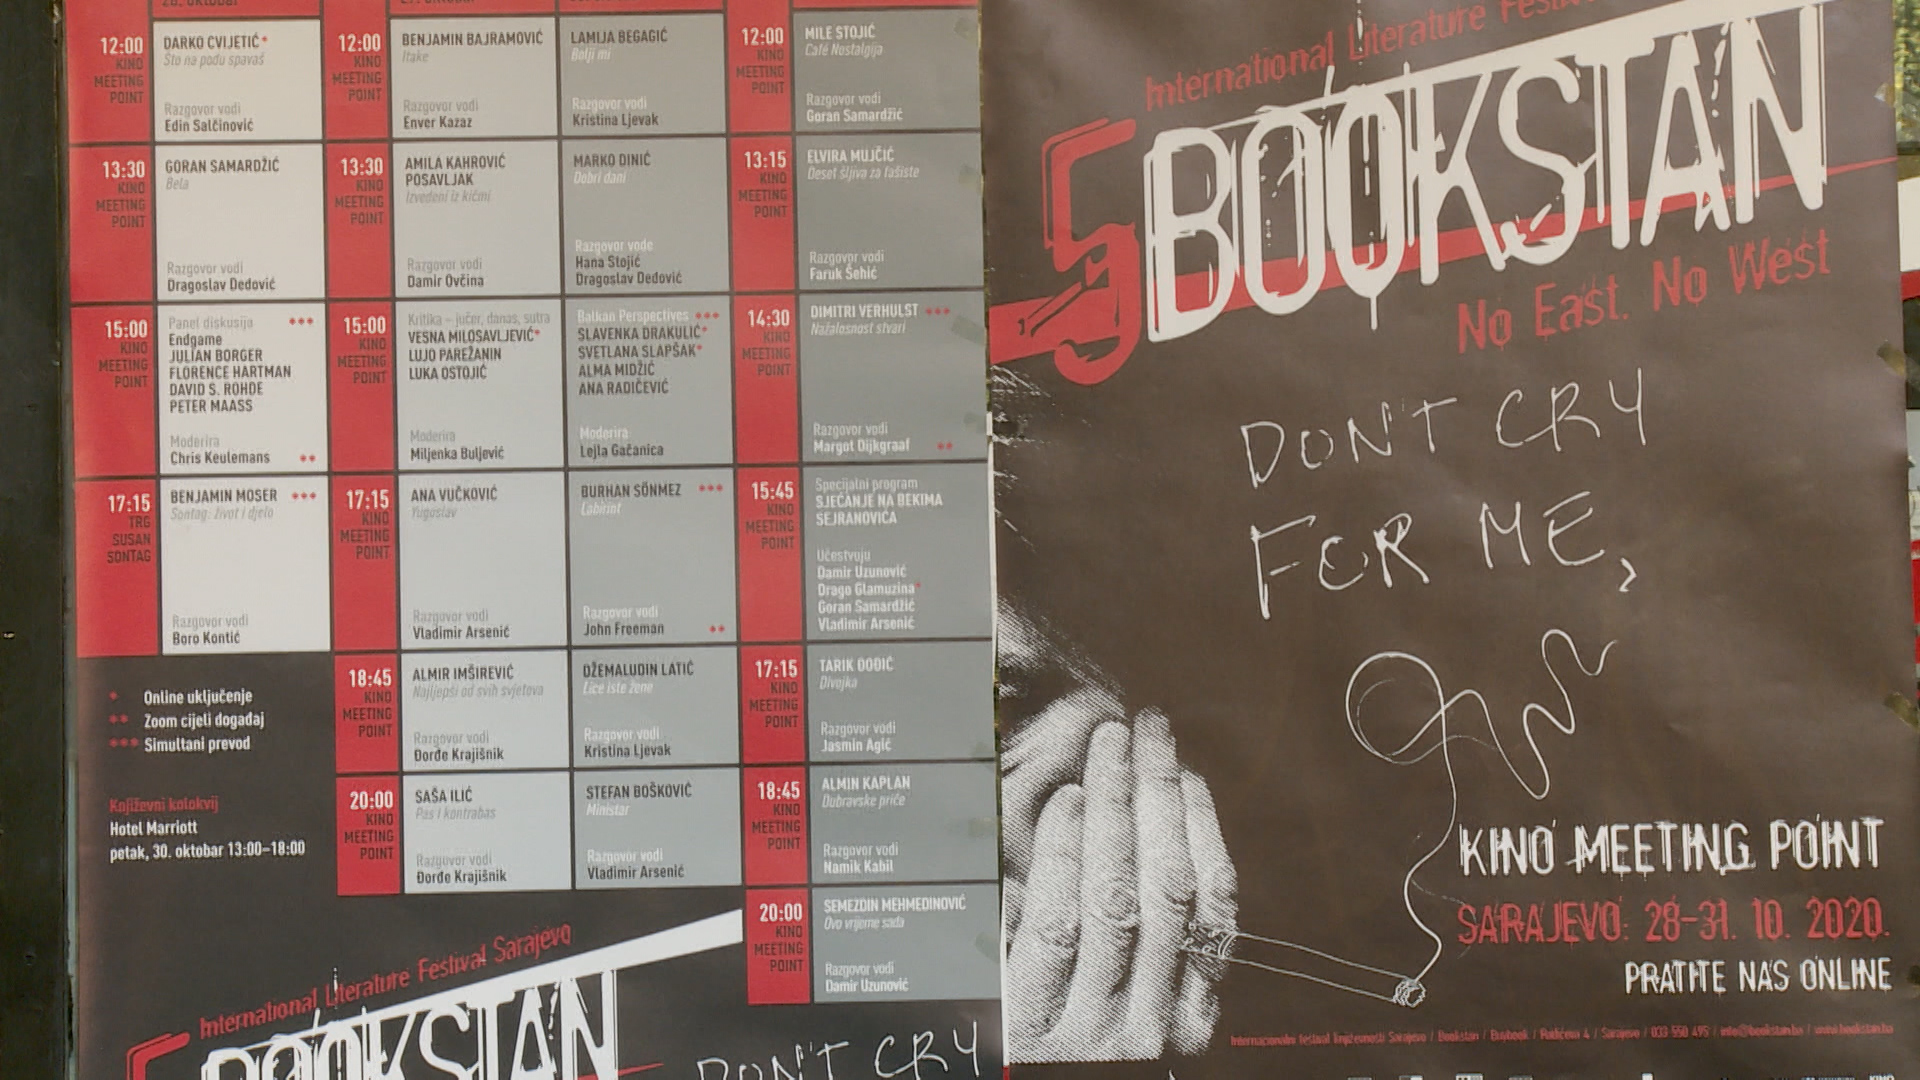 28. oktobar
12:00
KINO
MEETING
POINT
DARKO CVIJETIĆ*
Što na podu spavaš
Razgovor vodi
Edin Salčinović
12:00
KINO
MEETING
POINT
BENJAMIN BAJRAMOVIĆ
Itake
Razgovor vodi
Enver Kazaz
LAMIJA BEGAGIĆ
Bolji mi
Razgovor vodi
Kristina Ljevak
12:00
KINO
MEETING
POINT
MILE STOJIĆ
Café Nostalgija
Razgovor vodi
Goran Samardžić
13:30
KINO
MEETING
POINT
GORAN SAMARDŽIĆ
Bela
Razgovor vodi
Dragoslav Dedović
13:30
KINO
MEETING
POINT
AMILA KAHROVIĆ
POSAVLJAK
Izvedeni iz kičmi
Razgovor vodi
Damir Ovčina
MARKO DINIĆ
Dobri dani
Razgovor vode
Hana Stojić
Dragoslav Dedović
13:15
KINO
MEETING
POINT
ELVIRA MUJČIĆ
Deset šljiva za fašiste
Razgovor vodi
Faruk Šehić
15:00
KINO
MEETING
POINT
Panel diskusija ***
Endgame
JULIAN BORGER
FLORENCE HARTMAN
DAVID S. ROHDE
PETER MAASS
Moderira
Chris Keulemans **
15:00
KINO
MEETING
POINT
Kritika – jučer, danas, sutra
VESNA MILOSAVLJEVIĆ*
LUJO PAREŽANIN
LUKA OSTOJIĆ
Moderira
Miljenka Buljević
Balkan Perspectives ***
SLAVENKA DRAKULIĆ*
SVETLANA SLAPŠAK*
ALMA MIDŽIĆ
ANA RADIČEVIĆ
Moderira
Lejla Gačanica
14:30
KINO
MEETING
POINT
DIMITRI VERHULST ***
Nažalosnost stvari
Razgovor vodi
Margot Dijkgraaf **
17:15
TRG
SUSAN
SONTAG
BENJAMIN MOSER ***
Sontag: život i djelo
Razgovor vodi
Boro Kontić
17:15
KINO
MEETING
POINT
ANA VUČKOVIĆ
Yugoslav
Razgovor vodi
Vladimir Arsenić
BURHAN SÖNMEZ ***
Labirint
Razgovor vodi
John Freeman **
15:45
KINO
MEETING
POINT
Specijalni program
SJEĆANJE NA BEKIMA
SEJRANOVIĆA
Učestvuju
Damir Uzunović
Drago Glamuzina*
Goran Samardžić
Vladimir Arsenić
18:45
KINO
MEETING
POINT
ALMIR IMŠIREVIĆ
Najljepši od svih svjetova
Razgovor vodi
Đorđe Krajišnik
DŽEMALUDIN LATIĆ
Lice iste žene
Razgovor vodi
Kristina Ljevak
17:15
KINO
MEETING
POINT
TARIK ĐOĐIĆ
Divojka
Razgovor vodi
Jasmin Agić
20:00
KINO
MEETING
POINT
SAŠA ILIĆ
Pas i kontrabas
Razgovor vodi
Đorđe Krajišnik
STEFAN BOŠKOVIĆ
Ministar
Razgovor vodi
Vladimir Arsenić
18:45
KINO
MEETING
POINT
ALMIN KAPLAN
Dubravske priče
Razgovor vodi
Namik Kabil
20:00
KINO
MEETING
POINT
SEMEZDIN MEHMEDINOVIĆ
Ovo vrijeme sada
Razgovor vodi
Damir Uzunović
* Online uključenje
** Zoom cijeli događaj
*** Simultani prevod
Književni kolokvij
Hotel Marriott
petak, 30. oktobar 13:00–18:00
International Literature Festival Sarajevo
5 BOOKSTAN
DON'T CRY
International Literature Festival
5 BOOKSTAN
No East. No West
DON'T CRY
FOR ME,
KINO MEETING POINT
SARAJEVO: 28–31. 10. 2020.
PRATITE NAS ONLINE
Internacionalni festival književnosti Sarajevo / Bookstan / Buybook / Radićeva 4 / Sarajevo / 033 550 495 / info@bookstan.ba / www.bookstan.ba